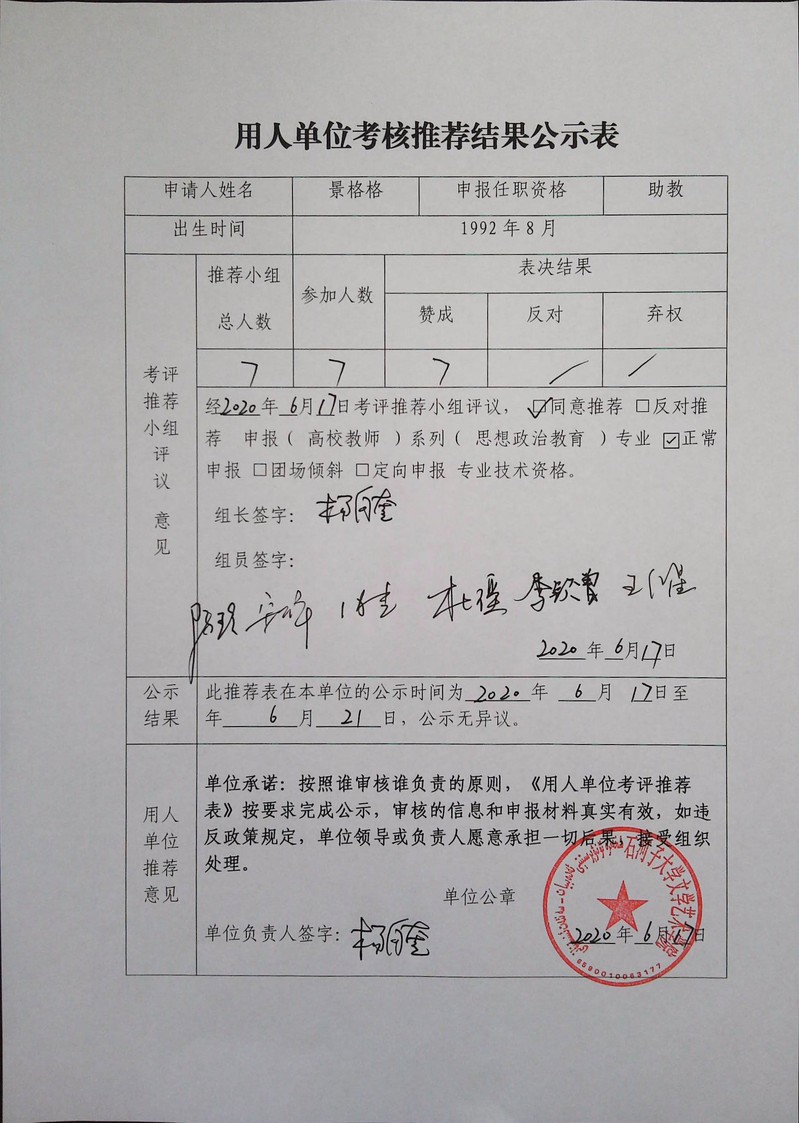 用人单位考核推荐结果公示表
申请人姓名 景格格 申报任职资格 助教
出生时间 1992 年 8 月
考评
推荐
小组
评
议
意
见
推荐小组
总人数
参加人数
表决结果
赞成 反对 弃权
7 7 7 / /
经2020年 6月17日考评推荐小组评议， ☑同意推荐 □反对推
荐 申报（ 高校教师 ）系列（ 思想政治教育 ）专业 ☑正常
申报 □团场倾斜 □定向申报 专业技术资格。
组长签字：
组员签字：
2020 年 6月17日
公示
结果
此推荐表在本单位的公示时间为 2020 年 6 月 17日至
年 6 月 21 日，公示无异议。
用人
单位
推荐
意见
单位承诺：按照谁审核谁负责的原则，《用人单位考评推荐
表》按要求完成公示，审核的信息和申报材料真实有效，如违
反政策规定，单位领导或负责人愿意承担一切后果，接受组织
处理。
单位公章
单位负责人签字：
2020年 6月17日
石河子大学文学艺术学院
6590010063177